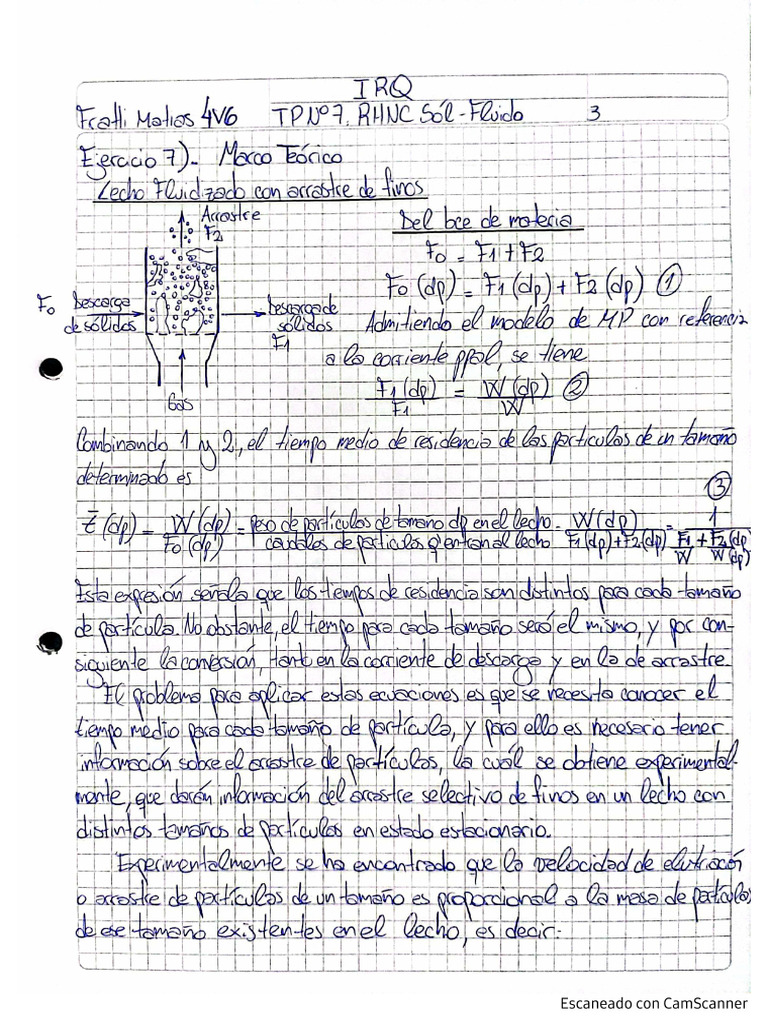 IRQ
Fratti Matias 4V6 TP Nº 7. RHNC Sól-Fluido 3
Ejercicio 7)- Marco Teórico
Lecho Fluidizado con arrastre de finos
Arrastre
F2
Del bce de materia
F0 = F1 + F2
F0 (dp) = F1 (dp) + F2 (dp) ①
F0 Descarga de sólidos
Descarga de sólidos F1
Gas
Admitiendo el modelo de MP con referencia
a la corriente ppal, se tiene
F1 (dp) / F1 = W (dp) / W ②
Combinando 1 y 2, el tiempo medio de residencia de las particulas de un tamaño
determinado es
③
t̄ (dp) = W (dp) / F0 (dp) = peso de partículas de tamaño dp en el lecho / caudales de particulas q entran al lecho = W(dp) / F1 (dp) + F2 (dp) = 1 / F1/W + F2 (dp / W (dp)
Esta expresión señala que los tiempos de residencia son distintos para cada tamaño
de partícula. No obstante, el tiempo para cada tamaño será el mismo, y por con-
siguiente la conversión, tanto en la corriente de descarga y en la de arrastre.
El problema para aplicar estas ecuaciones es que se necesita conocer el
tiempo medio para cada tamaño de partícula, y para ello es necesario tener
información sobre el arrastre de partículas, la cuál se obtiene experimental-
mente, que darán información del arrastre selectivo de finos en un lecho con
distintos tamaños de partículas en estado estacionario.
Experimentalmente se ha encontrado que la velocidad de elutriación
o arrastre de partículas de un tamaño es proporcional a la masa de partículas
de ese tamaño existentes en el lecho, es decir:
Escaneado con CamScanner